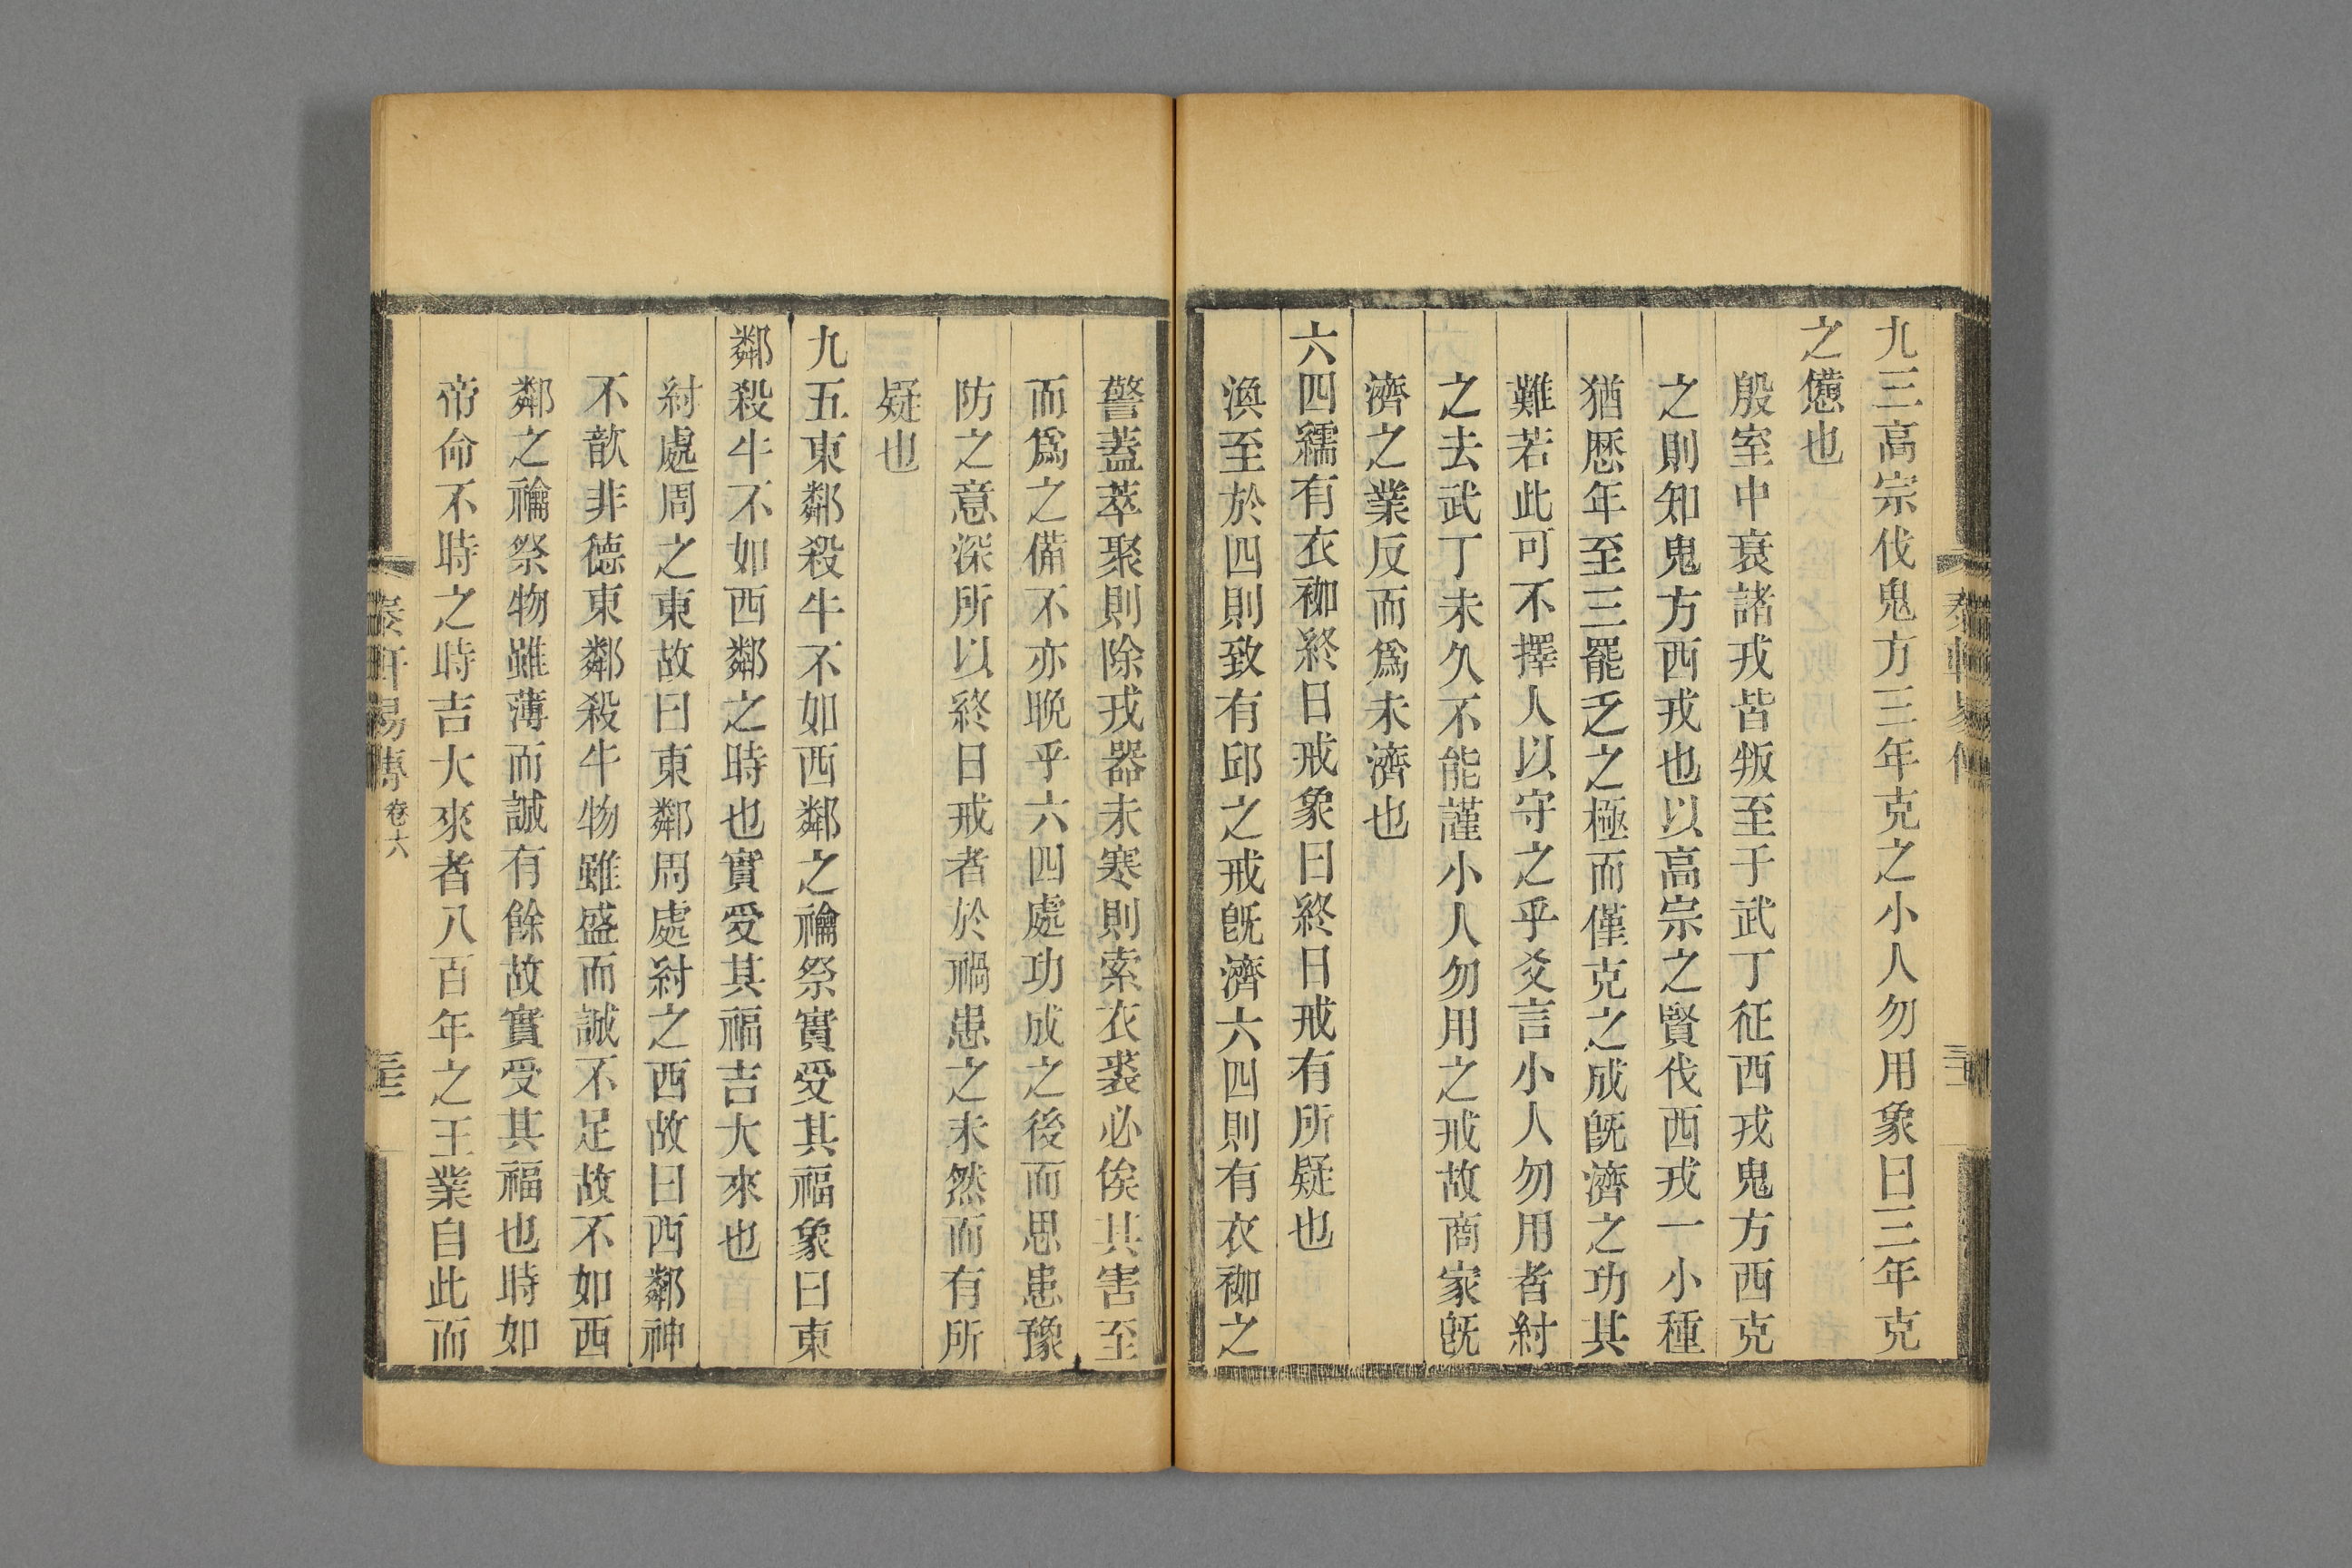 九三高宗伐鬼方三年克之小人勿用象曰三年克
之憊也
殷室中衰諸戎皆叛至于武丁征西戎鬼方西克
之則知鬼方西戎也以高宗之賢伐西戎一小種
猶歴年至三罷乏之極而僅克之成旣濟之功其
難若此可不擇人以守之乎爻言小人勿用者紂
之去武丁未久不能謹小人勿用之戒故商家旣
濟之業反而爲未濟也
六四繻有衣袽終日戒象曰終日戒有所疑也
渙至於四則致有邱之戒旣濟六四則有衣袽之
警蓋萃聚則除戎器未寒則索衣裘必俟其害至
而爲之備不亦晩乎六四處功成之後而思患豫
防之意深所以終日戒者於禍患之未然而有所
疑也
九五東鄰殺牛不如西鄰之禴祭實受其福象曰東
鄰殺牛不如西鄰之時也實受其福吉大來也
紂處周之東故曰東鄰周處紂之西故曰西鄰神
不歆非德東鄰殺牛物雖盛而誠不足故不如西
鄰之禴祭物雖薄而誠有餘故實受其福也時如
帝命不時之時吉大來者八百年之王業自此而
易傳 卷六